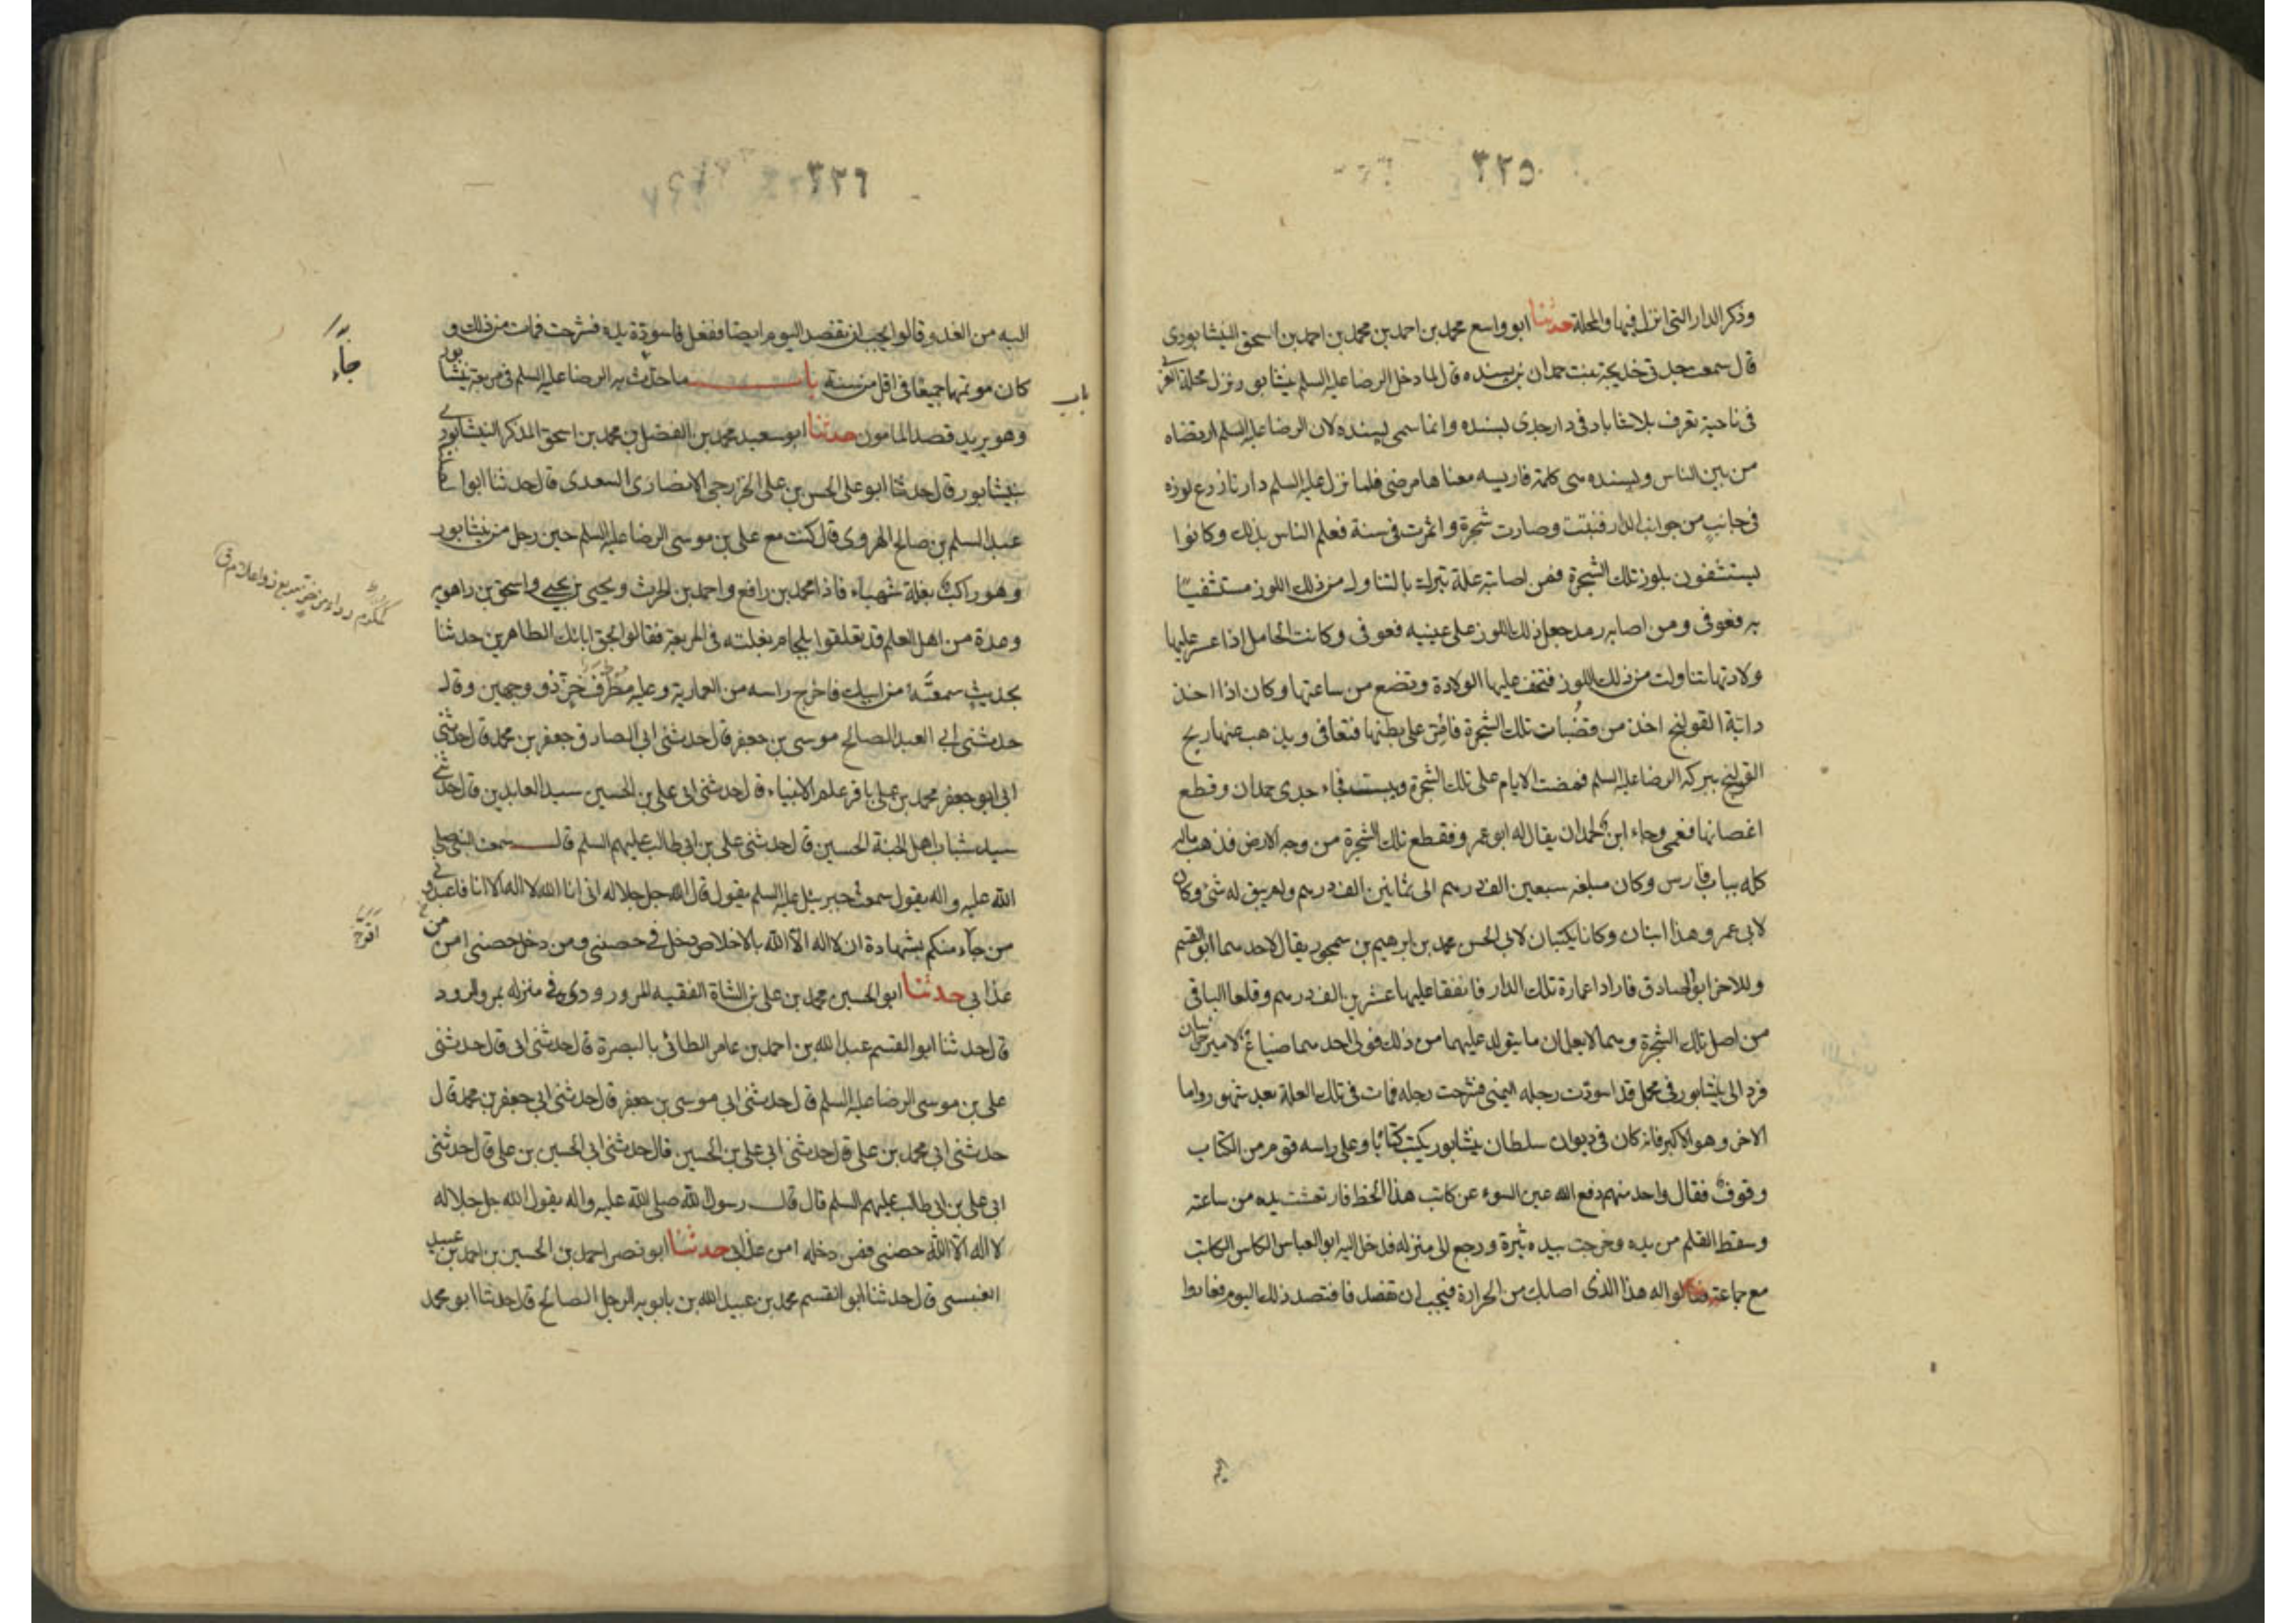 ٣٢٥
وذكر الدار التى انزل فيها والمحلة حدثنا ابو واسع محمد بن احمد بن محمد بن احمد بن اسحق النيشابورى
قال سمعت جدتى خديجة بنت حمدان بن بسنده قال لما دخل الرضا عليه السلم نيشابور نزل محلة الغز
فى ناحية تعرف بلاشاباد فى دار جدى بسنده وانما سمى بسنده لان الرضا عليه السلم ارتضاه
من بين الناس وبسنده هى كلمة فارسيه معناها مرضى فلما نزل عليه السلم دارنا زرع لوزه
فى جانب من جوانب الدار فنبتت وصارت شجرة واثمرت فى سنة فعلم الناس بذلك وكانوا
يستشفون بلوز تلك الشجرة فمن اصابته علة تبرك بالتناول من ذلك اللوز مستشفيا
به فعوفى ومن اصابه رمد جعل ذلك اللوز على عينيه فعوفى وكانت الحامل اذا عسر عليها
ولادتها تناولت من ذلك اللوز فتخف عليها الولادة وتضع من ساعتها وكان اذا اخذ
دابة القولنج اخذ من قضبات تلك الشجرة فامر على بطنها فتعافى ويذهب عنها ريح
القولنج ببركة الرضا عليه السلم فمضت الايام على تلك الشجرة ويبست فجاء جدى حمدان وقطع
اغصانها فعمى وجاء ابن لحمدان يقال له ابو عمرو فقطع تلك الشجرة من وجه الارض فذهب ماله
كله بباب فارس وكان مبلغه سبعين الف درهم الى ثمانين الف درهم ولم يبق له شئ وكان
لابى عمرو هذا ابنان وكانا يكتبان لابى الحسن محمد بن ابرهيم بن سمجور يقال لاحدهما ابو القسم
وللاخر ابو الصادق فارادا عمارة تلك الدار فانفقا عليها عشرين الف درهم وقلعا الباقى
من اصل تلك الشجرة وهما لا يعلمان ما يتولد عليهما من ذلك فولى احدهما ضياع الامير خراسان
فرد الى نيشابور فى محمل قد اسودت رجله اليمنى فشرحت رجله فمات فى تلك العلة بعد شهور واما
الاخر وهو الاكبر فانه كان فى ديوان سلطان نيشابور يكتب كتابا وعلى راسه قوم من الكتاب
وقوف فقال واحد منهم دفع الله عين السوء عن كاتب هذا الخط فارتعشت يده من ساعته
وسقط القلم من يده وخرجت بيده بثرة ورجع الى منزله فدخل اليه ابو العباس الكاتب
مع جماعة فقالوا له هذا الذى اصابك من الحرارة فيجب ان تفصد فافتصد ذلك اليوم فعادوا
٣٢٦
اليه من الغد وقالوا يجب ان تفصد اليوم ايضا ففعل فاسودة يده فشرحت فمات من ذلك و
كان موتهما جميعا فى اقل من سنة باب ما حدث به الرضا عليه السلم فى مربعة نيشابور
باب
جاء
وهو يريد قصد المامون حدثنا ابو سعيد محمد بن الفضل بن محمد بن اسحق المذكر النيشابورى
بنيشابور قال حدثنا ابو على الحسن بن على الخزرجى الانصارى السعدى قال حدثنا ابو الصلت
عبد السلم بن صالح الهروى قال كنت مع على بن موسى الرضا عليه السلم حين رحل من نيشابور
وهو راكب بغلة شهباء فاذا محمد بن رافع واحمد بن الحرث ويحيى بن يحيى واسحق بن راهويه
وعدة من اهل العلم قد تعلقوا بلجام بغلته فى المربعة فقالوا بحق ابائك الطاهرين حدثنا
بحديث سمعته من ابيك فاخرج راسه من العمارية وعليه مطرف خز ذو وجهين وقال
حدثنى ابى العبد الصالح موسى بن جعفر قال حدثنى ابى الصادق جعفر بن محمد قال حدثنى
ابى ابو جعفر محمد بن على باقر علم الانبياء قال حدثنى ابى على بن الحسين سيد العابدين قال حدثنى
سيد شباب اهل الجنة الحسين قال حدثنى على بن ابى طالب عليهم السلم قال سمعت النبى صلى
الله عليه واله يقول سمعت جبرئيل عليه السلم يقول قال الله جل جلاله انى انا الله لا اله الا انا فاعبدونى
من جاء منكم بشهادة ان لا اله الا الله بالاخلاص دخل فى حصنى ومن دخل حصنى امن من
عذابى حدثنا ابو الحسين محمد بن على بن الشاة الفقيه المرورودى فى منزله بمرو الرود
قال حدثنا ابو القسم عبد الله بن احمد بن عامر الطائى بالبصرة قال حدثنى ابى قال حدثنى
على بن موسى الرضا عليه السلم قال حدثنى ابى موسى بن جعفر قال حدثنى ابى جعفر بن محمد قال
حدثنى ابى محمد بن على قال حدثنى ابى على بن الحسين قال حدثنى ابى الحسين بن على قال حدثنى
ابى على بن ابى طالب عليهم السلم قال قال رسول الله صلى الله عليه واله يقول الله جل جلاله
لا اله الا الله حصنى فمن دخله امن عذابى حدثنا ابو نصر احمد بن الحسين بن احمد بن عبيد
الضبى قال حدثنا ابو القسم محمد بن عبيد الله بن بابويه الرجل الصالح قال حدثنا ابو محمد